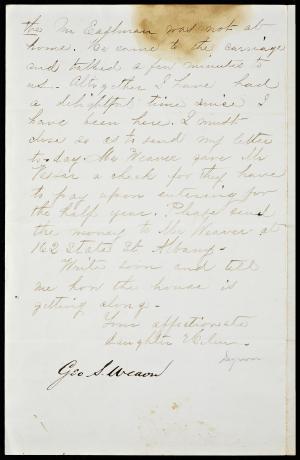 Mr Eastman was not at
home. He came to the carriage
and talked a few minutes to
us. Altogether I have had
a delightful time since I
have been here. I must
close so as to send my letter
to-day. Mr Weaver gave Mr
a check for they have
to pay upon entering for
the half year. Please send
the money to Mr Weaver at
162 State St Albany.
Write soon and tell
me how the house is
getting along.
Your affectionate
daughter Helen.
Geo. S. Weaver